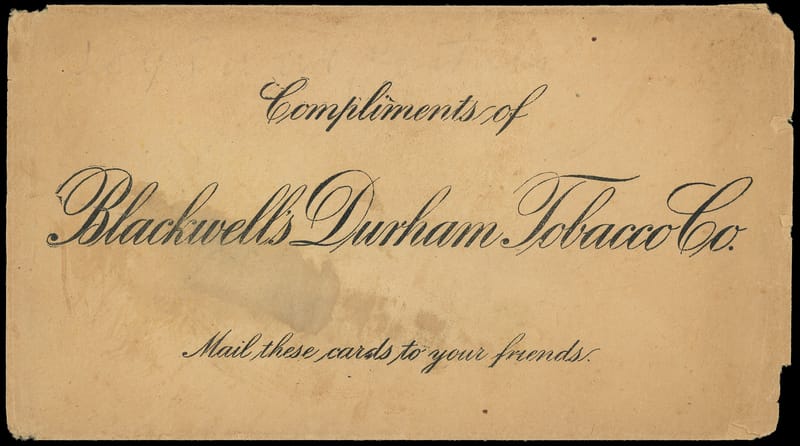 Compliments of
Blackwell's Durham Tobacco Co.
Mail these cards to your friends.